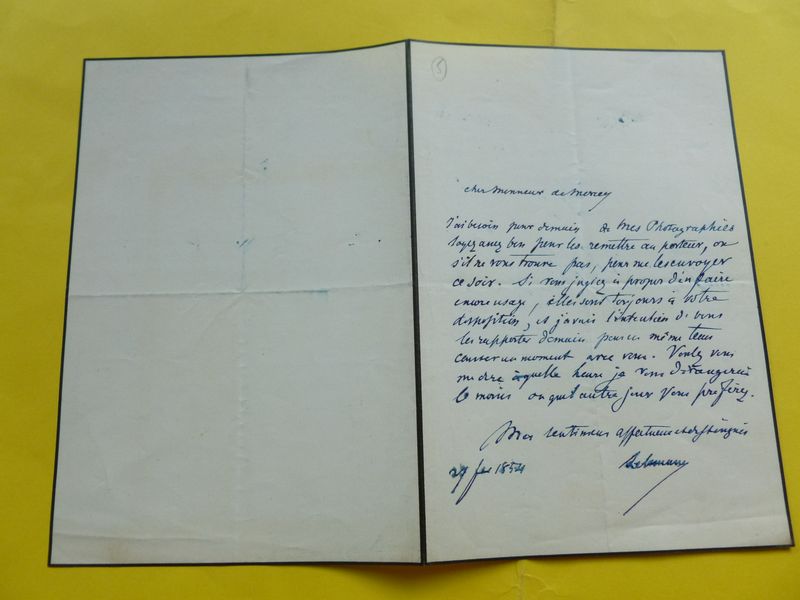 5
cher Monsieur de Mercey
J'ai besoin pour demain de mes Photographies
soyez assez bon pour les remettre au porteur, ou
s'il ne vous trouve pas, pour me les envoyer
ce soir. Si vous jugiez à propos d'en faire
encore usage, elles sont toujours à votre
disposition, et j'avais l'intention de vous
les rapporter demain pour en même tems
causer un moment avec vous. Voulez vous
me dire à quelle heure je vous dérangerai
le moins ou quel autre jour vous préférez.
Mes sentimens affectueux et distingués
27 fev 1854